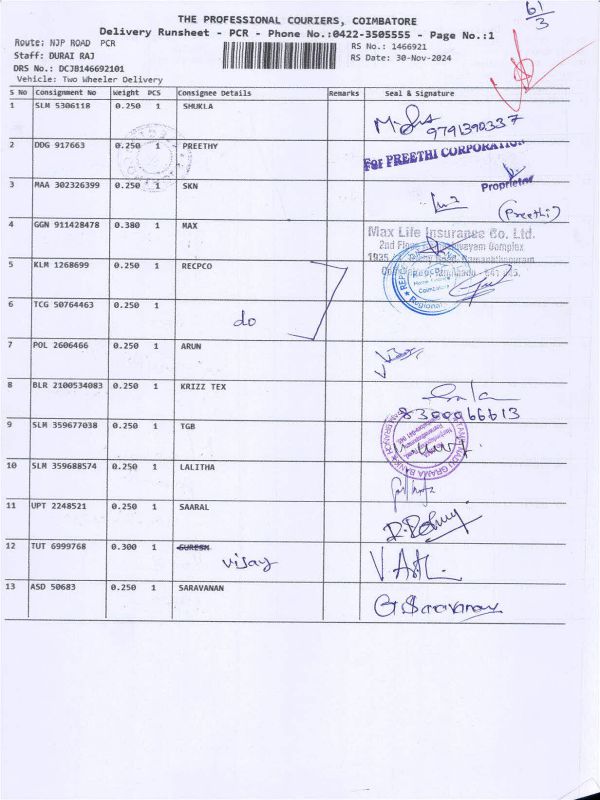 61/3
THE PROFESSIONAL COURIERS, COIMBATORE
Delivery Runsheet - PCR - Phone No.:0422-3505555 - Page No.:1
Route: NJP ROAD PCR
RS No.: 1466921
Staff: DURAI RAJ
RS Date: 30-Nov-2024
DRS No.: DCJB146692101
Vehicle: Two Wheeler Delivery
S No Consignment No Weight PCS Consignee Details Remarks Seal & Signature
1 SLM 5306118 0.250 1 SHUKLA
9791390337
2 DDG 917663 0.250 1 PREETHY
For PREETHI CORPORATION
Proprietor
3 MAA 302326399 0.250 1 SKN
(Preethi)
4 GGN 911428478 0.380 1 MAX
Max Life Insurance Co. Ltd.
5 KLM 1268699 0.250 1 RECPCO
6 TCG 50764463 0.250 1
do
7 POL 2606466 0.250 1 ARUN
8 BLR 2100534083 0.250 1 KRIZZ TEX
8300066613
9 SLM 359677038 0.250 1 TGB
TAMIL NADU GRAMA BANK
10 SLM 359688574 0.250 1 LALITHA
11 UPT 2248521 0.250 1 SAARAL
12 TUT 6999768 0.300 1 SURESH
vijay
13 ASD 50683 0.250 1 SARAVANAN
G. Saravanan